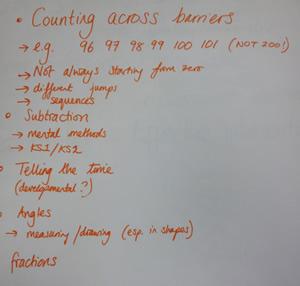 • Counting across barriers
→ e.g. 96 97 98 99 100 101 (NOT 200!)
→ Not always starting from zero
→ different jumps
→ sequences
• Subtraction
→ mental methods
→ KS1/KS2
• Telling the time
(developmental?)
• Angles
→ measuring/drawing (esp. in shapes)
fractions